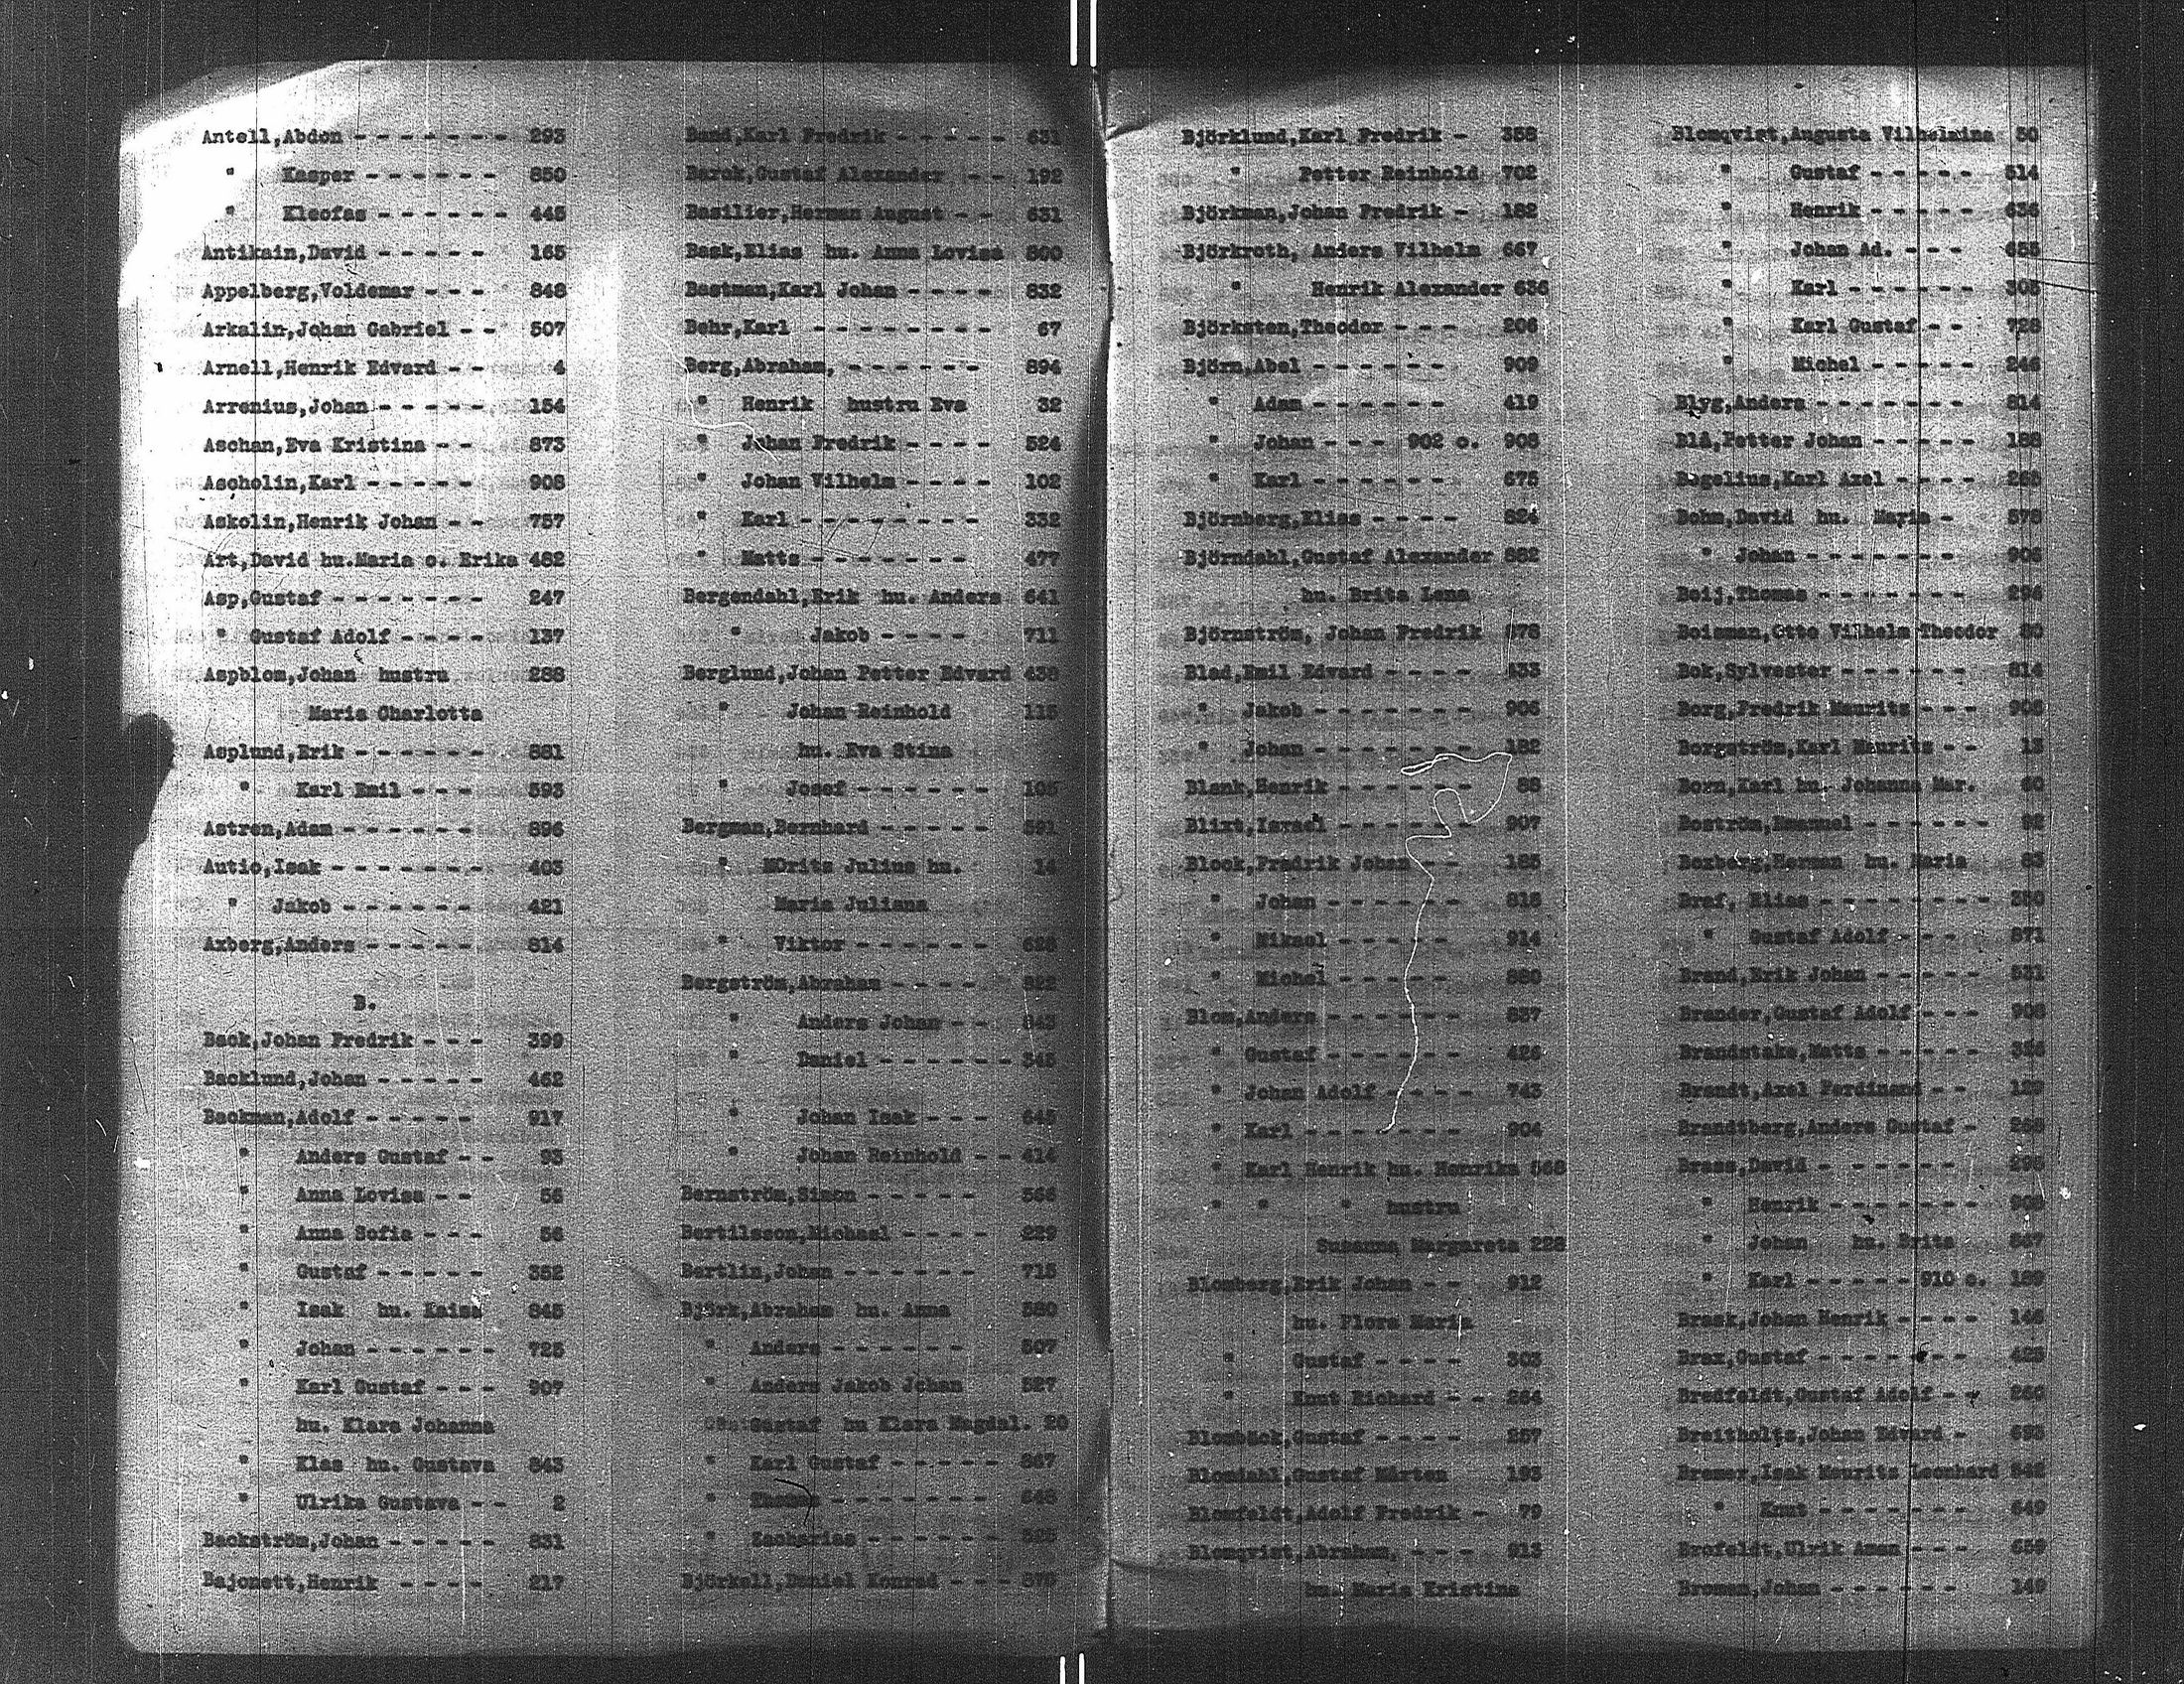 Antell,Abdon - - - - - - - 293
" Kasper - - - - - - 850
" Kleofas - - - - - - 445
Antikain,David - - - - - 165
Appelberg,Voldemar - - - 848
Arkalin,Johan Gabriel - - 507
Arnell,Henrik Edvard - - 4
Arrenius,Johan - - - - - 154
Aschan,Eva Kristina - - 873
Ascholin,Karl - - - - - 908
Askolin,Henrik Johan - - 757
Art,David hu.Maria o. Erika 482
Asp,Gustaf - - - - - - - 247
" Gustaf Adolf - - - - 137
Aspblom,Johan hustru 288
Maria Charlotta
Asplund,Erik - - - - - - 881
" Karl Emil - - - 593
Astren,Adam - - - - - - 896
Autio,Isak - - - - - - - 405
" Jakob - - - - - - 421
Axberg,Anders - - - - - 814
B.
Back,Johan Fredrik - - - 399
Backlund,Johan - - - - - 462
Backman,Adolf - - - - - 917
" Anders Gustaf - - 93
" Anna Lovisa - - 56
" Anna Sofia - - - 56
" Gustaf - - - - - 352
" Isak hu. Kaisa 845
" Johan - - - - - - 725
" Karl Gustaf - - - 907
hu. Klara Johanna
" Klas hu. Gustava 843
" Ulrika Gustava - - 2
Backström,Johan - - - - - 831
Bajonett,Henrik - - - - 217
Band,Karl Fredrik - - - - - 631
Barck,Gustaf Alexander - - 192
Basilier,Herman August - - 631
Bask,Elias hu. Anna Lovisa 890
Bastman,Karl Johan - - - - 832
Behr,Karl - - - - - - - - 67
Berg,Abraham, - - - - - - 894
" Henrik hustru Eva 32
" Johan Fredrik - - - - 524
" Johan Vilhelm - - - - 102
" Karl - - - - - - - - 332
" Matts - - - - - - - 477
Bergendahl,Erik hu. Anders 641
" Jakob - - - - 711
Berglund,Johan Petter Edvard 438
" Johan Reinhold 115
hu. Eva Stina
" Josef - - - - - - 105
Bergman,Bernhard - - - - - 591
" MOrits Julius hu. 14
Maria Juliana
" Viktor - - - - - - 628
Bergström,Abraham - - - - 822
" Anders Johan - - 843
" Daniel - - - - - - 345
" Johan Isak - - - 645
" Johan Reinhold - - 414
Bernström,Simon - - - - - 566
Bertilsson,Michael - - - - 229
Bertlin,Johan - - - - - - 715
Björk,Abraham hu. Anna 580
" Anders - - - - - - 507
" Anders Jakob Johan 527
Gustaf hu Klara Magdal. 20
" Karl Gustaf - - - - - 867
" Thomas - - - - - - - 648
" Zacharias - - - - - - - 525
Björkell,Daniel Konrad - - 578
Björklund,Karl Fredrik - 358
" Petter Reinhold 702
Björkman,Johan Fredrik - 182
Björkroth, Anders Vilhelm 667
" Henrik Alexander 636
Björksten,Theodor - - - 206
Björn,Abel - - - - - - 909
" Adam - - - - - - 419
" Johan - - - 902 o. 908
" Karl - - - - - - 675
Björnberg,Elias - - - - 824
Björndahl,Gustaf Alexander 882
hu. Brita Lena
Björnström, Johan Fredrik 878
Blad,Emil Edvard - - - - 533
" Jakob - - - - - - - 906
" Johan - - - - - - - 182
Blank,Henrik - - - - - - 88
Blixt,Israel - - - - - - 907
Block,Fredrik Johan - - 185
" Johan - - - - - - 815
" Mikael - - - - - 914
" Michel - - - - - 888
Blom,Anders - - - - - - 837
" Gustaf - - - - - - 426
" Johan Adolf - - - - 743
" Karl - - - - - - - 904
" Karl Henrik hu. Henrika 568
" " " hustru
Susanna Margareta 228
Blomberg,Erik Johan - - 912
hu. Flora Maria
" Gustaf - - - - 303
" Knut Richard - - 264
Blombäck,Gustaf - - - - 257
Blomdahl,Gustaf Mårten 193
Blomfeldt,Adolf Fredrik - 79
Blomqvist,Abraham, - - - 913
hu. Maria Kristina
Blomqvist,Augusta Vilhelmina 50
" Gustaf - - - - - 514
" Henrik - - - - - 636
" Johan Ad. - - - 655
" Karl - - - - - - 303
" Karl Gustaf - - 728
" Michel - - - - - 246
Blyg,Anders - - - - - - - 814
Blå,Petter Johan - - - - - 188
Bogelius,Karl Axel - - - - 268
Bohm,David hu. Maria - 578
" Johan - - - - - - - 906
Boij,Thomas - - - - - - - 294
Boisman,Otto Vilhelm Theodor 80
Bok,Sylvester - - - - - - 814
Borg,Fredrik Maurits - - - 908
Borgström,Karl Maurits - - 13
Born,Karl hu. Johanna Mar. 60
Boström,Emanuel - - - - - - 92
Boxberg,Herman hu. Maria 83
Braf, Elias - - - - - - - - 380
" Gustaf Adolf - - - 871
Brand,Erik Johan - - - - - 521
Brander,Gustaf Adolf - - - 908
Brandstake,Matts - - - - - 356
Brandt,Axel Ferdinand - - 129
Brandtberg,Anders Gustaf - 268
Brass,David - - - - - - 298
" Henrik - - - - - - - 909
" Johan hu. Brita 867
" Karl - - - - - 910 o. 189
Brask,Johan Henrik - - - - 146
Brax,Gustaf - - - - - - - 428
Bredfeldt,Gustaf Adolf - - 260
Breitholtz,Johan Edvard - 693
Bremer,Isak Mourits Leonhard 846
" Knut - - - - - - - 649
Brofeldt,Ulrik Aman - - - 659
Broman,Johan - - - - - - 149